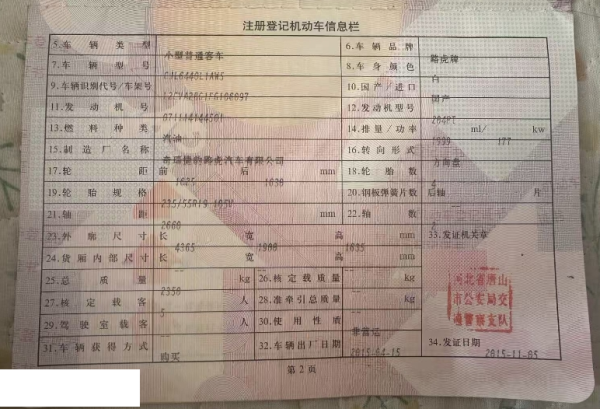 注册登记机动车信息栏
5.车辆类型 小型普通客车 6.车辆品牌 路虎牌
7.车辆型号 CJL6440L1AW5 8.车身颜色 白
9.车辆识别代号/车架号 10.国产/进口 国产
11.发动机号 071114144501 12.发动机型号 204PT
13.燃料种类 汽油 14.排量/功率 1999 ml/ 177 kw
15.制造厂名称 奇瑞捷豹路虎汽车有限公司 16.转向形式 方向盘
17.轮距 前 1625 后 1630 mm 18.轮胎数 4
19.轮胎规格 235/55R19 105V 20.钢板弹簧片数 后轴 片
21.轴距 2660 mm 22.轴数
23.外廓尺寸 长 4365 宽 1908 高 1635 mm 33.发证机关章
24.货厢内部尺寸 长 宽 高 mm
25.总质量 2350 kg 26.核定载质量 kg
27.核定载客 5 人 28.准牵引总质量 kg
29.驾驶室载客 人 30.使用性质 非营运
31.车辆获得方式 购买 32.车辆出厂日期 2015-04-15 34.发证日期 2015-11-05
河北省唐山
市公安局交
通警察支队
第2页